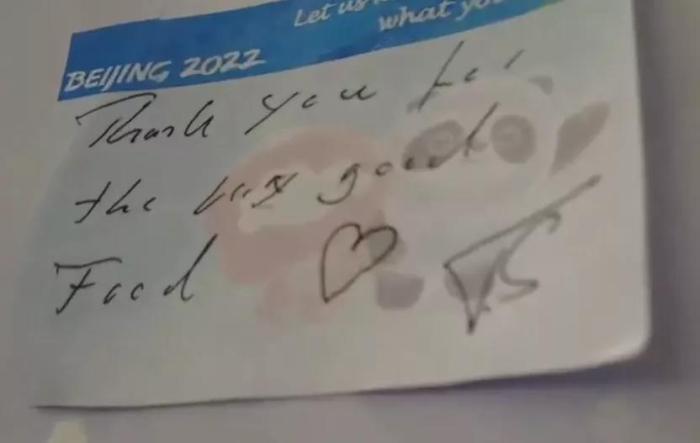 Let us
what you
BEIJING 2022
Thank you for
the very good
Food